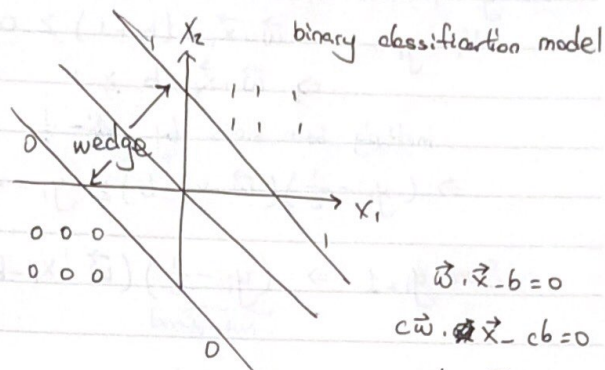 binary classifiction model
X₂
1
1 1 1
1 1 1
0
wedge
X₁
0 0 0
0 0 0
1
0
w⃗.x⃗-b=0
cw⃗.x⃗-cb=0